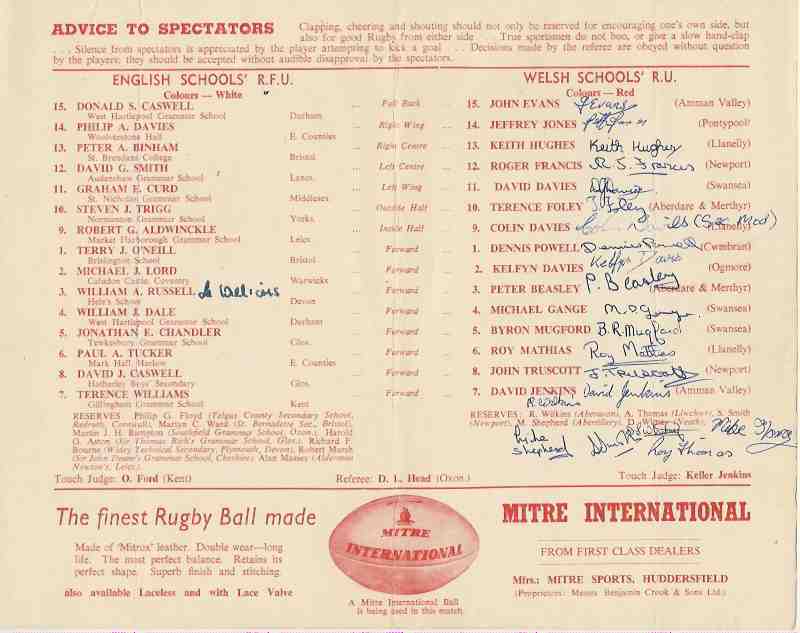 ADVICE TO SPECTATORS
Clapping, cheering and shouting should not only be reserved for encouraging one's own side, but
also for good Rugby from either side . . . True sportsmen do not boo, or give a slow hand-clap
. . . Silence from spectators is appreciated by the player attempting to kick a goal . . . Decisions made by the referee are obeyed without question
by the players; they should be accepted without audible disapproval by the spectators.
ENGLISH SCHOOLS' R.F.U.
Colours — White
15. DONALD S. CASWELL
West Hartlepool Grammar School Durham
14. PHILIP A. DAVIES
Woolverstone Hall E. Counties
13. PETER A. BINHAM
St. Brendans College Bristol
12. DAVID G. SMITH
Audenshaw Grammar School Lancs.
11. GRAHAM E. CURD
St. Nicholas Grammar School Middlesex
10. STEVEN J. TRIGG
Normanton Grammar School Yorks.
9. ROBERT G. ALDWINCKLE
Market Harborough Grammar School Leics
1. TERRY J. O'NEILL
Brislington School Bristol
2. MICHAEL J. LORD
Caludon Castle, Coventry Warwicks
3. WILLIAM A. RUSSELL
Hele's School Devon
4. WILLIAM J. DALE
West Hartlepool Grammar School Durham
5. JONATHAN E. CHANDLER
Tewkesbury Grammar School Glos.
6. PAUL A. TUCKER
Mark Hall, Harlow E. Counties
8. DAVID J. CASWELL
Hatherley Boys' Secondary Glos.
7. TERENCE WILLIAMS
Gillingham Grammar School Kent
RESERVES: Philip G. Floyd (Tolgus County Secondary School,
Redruth, Cornwall), Martyn C. Ward (St. Bernadette Sec., Bristol),
Martin J. H. Bunyston (Southfield Grammar School, Oxon.), Harold
O. Aston (Sir Thomas Rich's Grammar School, Glos.), Richard F.
Bourne (Widey Technical Secondary, Plymouth, Devon), Robert Marsh
(Sir John Deane's Grammar School, Cheshire), Alan Massey (Alderman
Newton's, Leics.).
Full Back
Right Wing
Right Centre
Left Centre
Left Wing
Outside Half
Inside Half
Forward
Forward
Forward
Forward
Forward
Forward
Forward
Forward
WELSH SCHOOLS' R.U.
Colours — Red
15. JOHN EVANS J Evans (Amman Valley)
14. JEFFREY JONES (Pontypool)
13. KEITH HUGHES Keith Hughes (Llanelly)
12. ROGER FRANCIS R. S. Francis (Newport)
11. DAVID DAVIES (Swansea)
10. TERENCE FOLEY T. Foley (Aberdare & Merthyr)
9. COLIN DAVIES Colin Davies (Sec Mod) (Llanelly)
1. DENNIS POWELL Dennis Powell (Cwmbran)
2. KELFYN DAVIES Kelfyn Davies (Ogmore)
3. PETER BEASLEY P. Beasley (Aberdare & Merthyr)
4. MICHAEL GANGE (Swansea)
5. BYRON MUGFORD B.R. Mugford (Swansea)
6. ROY MATHIAS Roy Mathias (Llanelly)
8. JOHN TRUSCOTT J. Truscott (Newport)
7. DAVID JENKINS David Jenkins (Amman Valley)
R. Wilkins
RESERVES: R. Wilkins (Aberavon), A. Thomas (Llwchwr), S. Smith
(Newport), M. Shepherd (Abertillery), D. (Neath).
Mike
Shepherd
Roy Thomas
Touch Judge: O. Ford (Kent)
Referee: D. L. Head (Oxon.)
Touch Judge: Keller Jenkins
The finest Rugby Ball made
Made of 'Mitrox' leather. Double wear—long
life. The most perfect balance. Retains its
perfect shape. Superb finish and stitching.
also available Laceless and with Lace Valve
MITRE
INTERNATIONAL
A Mitre International Ball
is being used in this match.
MITRE INTERNATIONAL
FROM FIRST CLASS DEALERS
Mfrs.: MITRE SPORTS, HUDDERSFIELD
(Proprietors: Messrs Benjamin Crook & Sons Ltd.)